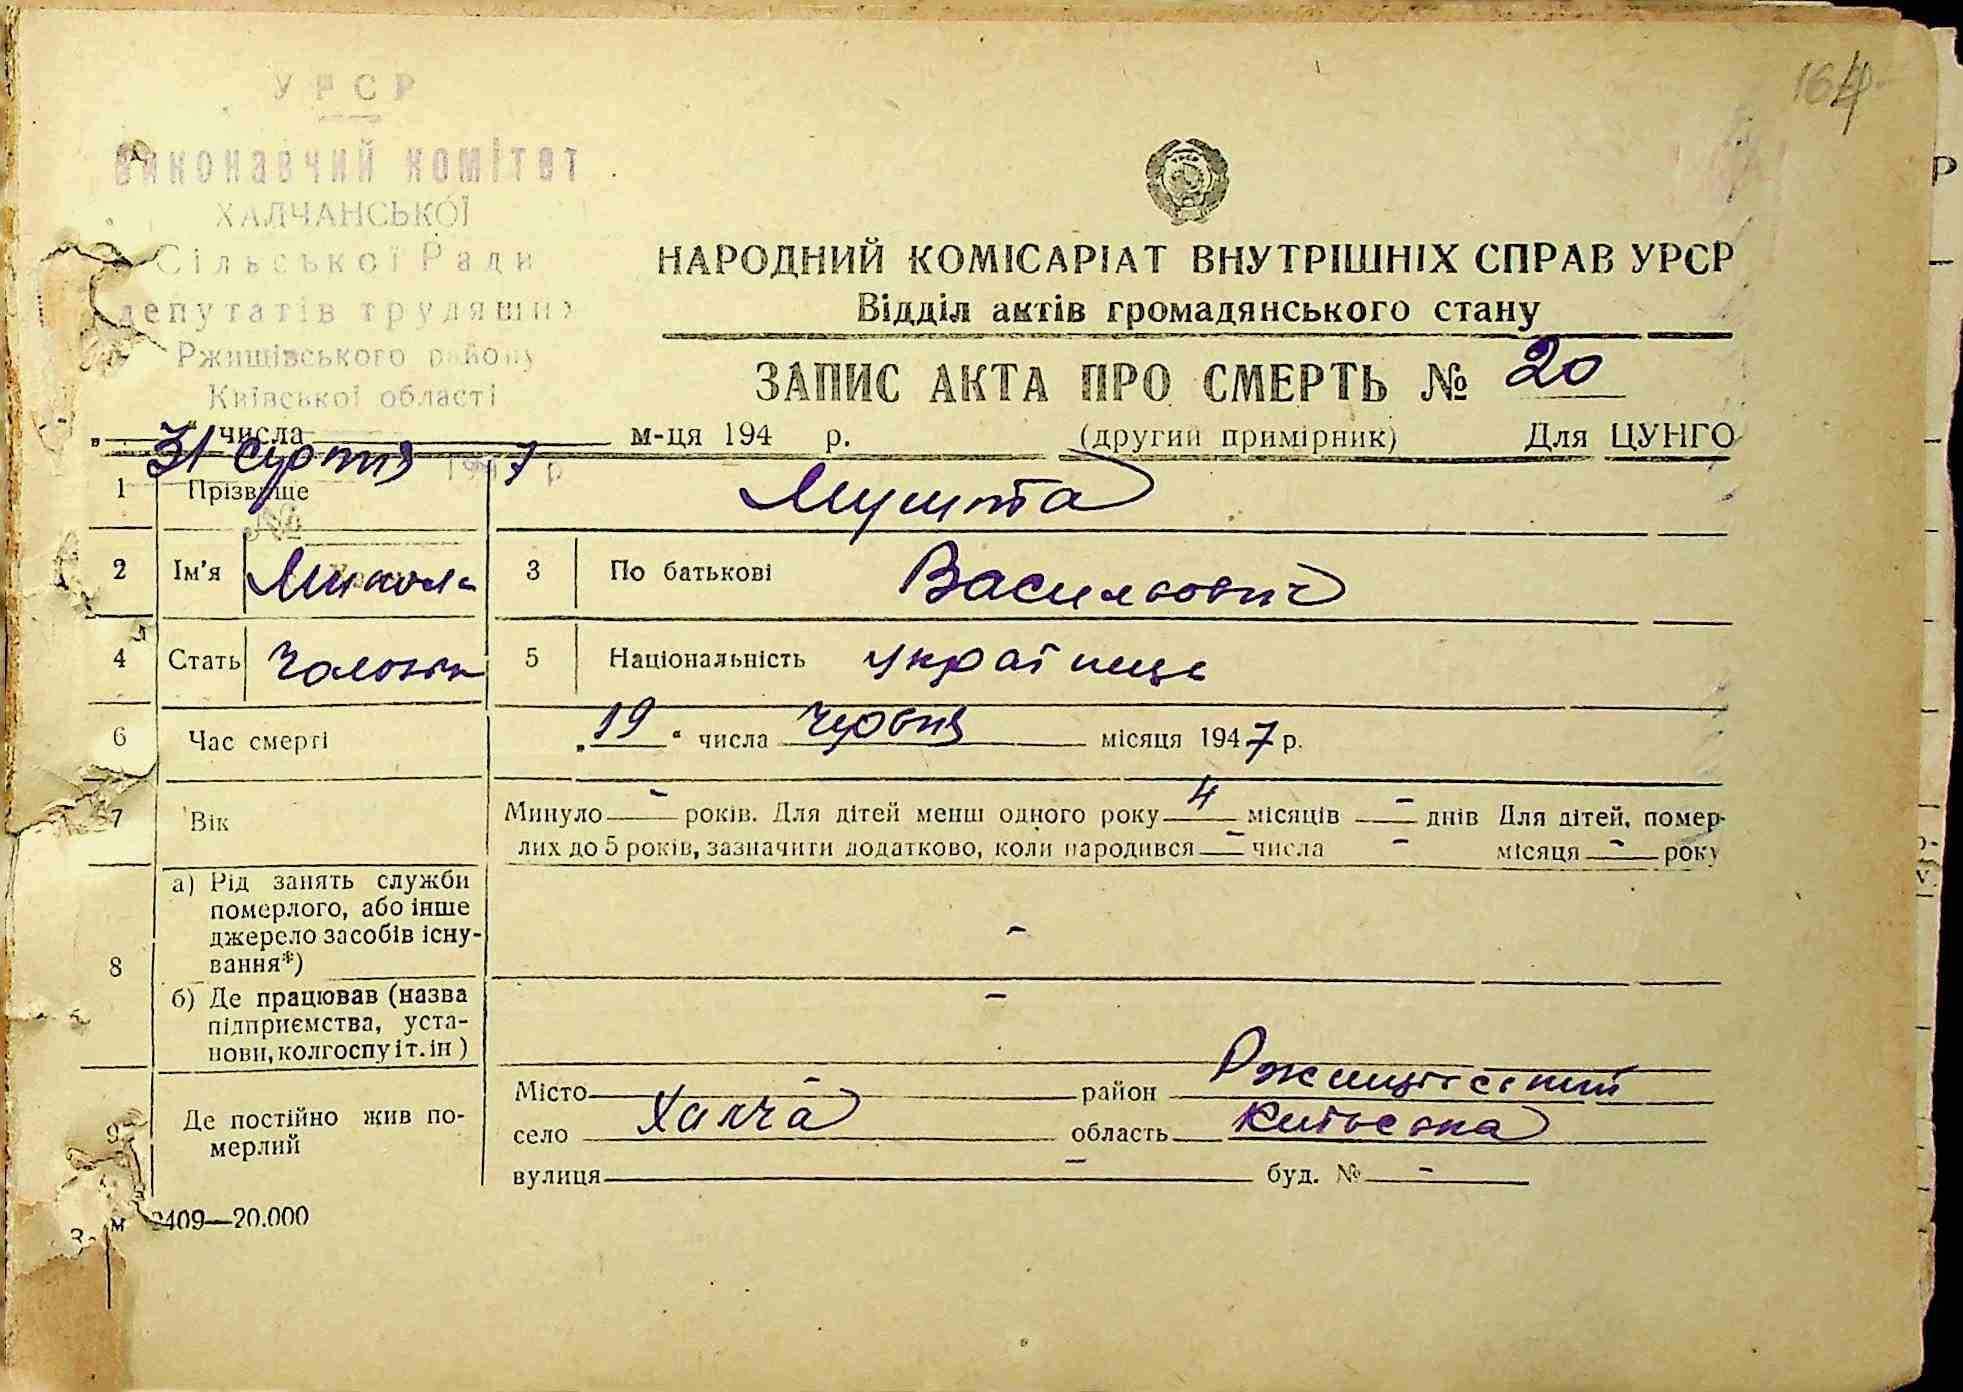 164
УРСР
Виконавчий комітет
ХАЛЧАНСЬКОЇ
Сільської Ради
депутатів трудящих
Ржищівського району
Київської області
НАРОДНИЙ КОМІСАРІАТ ВНУТРІШНІХ СПРАВ УРСР
Відділ актів громадянського стану
ЗАПИС АКТА ПРО СМЕРТЬ № 20
„ “ числа м-ця 194 р. (другий примірник) Для ЦУНГО
31 серпня 1947 р
1 Прізвище Мушта
№
2 Ім'я Микола 3 По батькові Васильович
4 Стать чоловік 5 Національність українець
6 Час смерті „19“ числа червня місяця 1947 р.
7 Вік Минуло - років. Для дітей менш одного року 4 місяців - днів Для дітей, помер-
лих до 5 років, зазначити додатково, коли народився - числа - місяця - року
8 а) Рід занять служби
померлого, або інше
джерело засобів існу-
вання*) -
б) Де працював (назва
підприємства, уста-
нови, колгоспу і т. ін ) -
9 Де постійно жив по-
мерлий
Місто - район Ржищівський
село Халча область Київська
вулиця - буд. № -
409—20.000